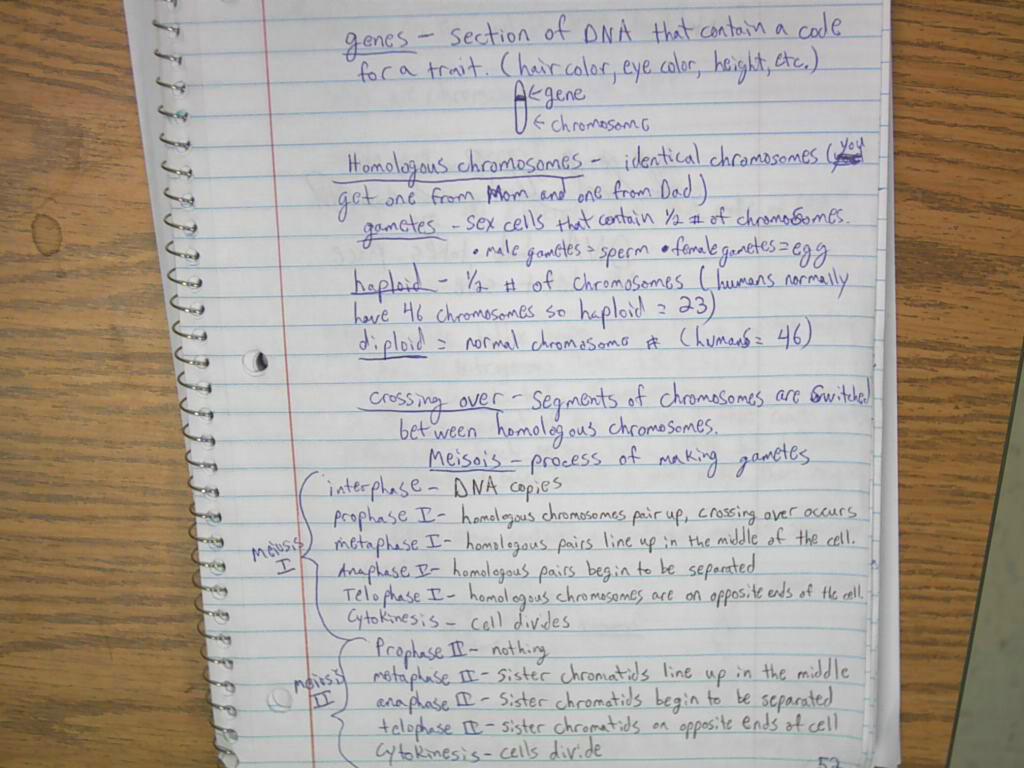 genes - section of DNA that contain a code
for a trait. (hair color, eye color, height, etc.)
← gene
← chromosome
Homologous chromosomes - identical chromosomes (you
get one from Mom and one from Dad)
gametes - sex cells that contain 1/2 # of chromosomes.
• male gametes = sperm • female gametes = egg
haploid - 1/2 # of chromosomes (humans normally
have 46 chromosomes so haploid = 23)
diploid = normal chromosome # (humans = 46)
crossing over - segments of chromosomes are switched
between homologous chromosomes.
Meisois - process of making gametes
Meiosis I
interphase - DNA copies
prophase I - homologous chromosomes pair up, crossing over occurs
metaphase I - homologous pairs line up in the middle of the cell.
Anaphase I - homologous pairs begin to be separated
Telophase I - homologous chromosomes are on opposite ends of the cell.
Cytokinesis - cell divides
Meiosis II
Prophase II - nothing
metaphase II - sister chromatids line up in the middle
anaphase II - sister chromatids begin to be separated
telophase II - sister chromatids on opposite ends of cell
Cytokinesis - cells divide